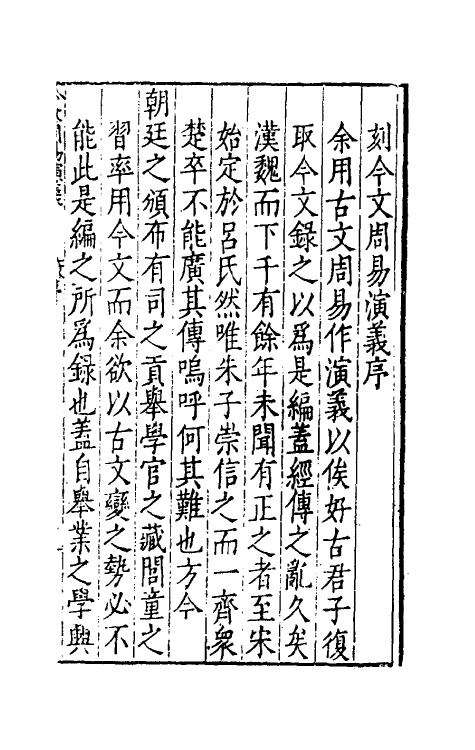 刻今文周易演義序
余用古文周易作演義以俟好古君子復
取今文錄之以爲是編蓋經傳之亂久矣
漢魏而下千有餘年未聞有正之者至宋
始定於呂氏然唯朱子崇信之而一齊衆
楚卒不能廣其傳嗚呼何其難也方今
朝廷之頒布有司之貢舉學官之藏閭童之
習率用今文而余欲以古文變之勢必不
能此是編之所爲錄也蓋自舉業之學興